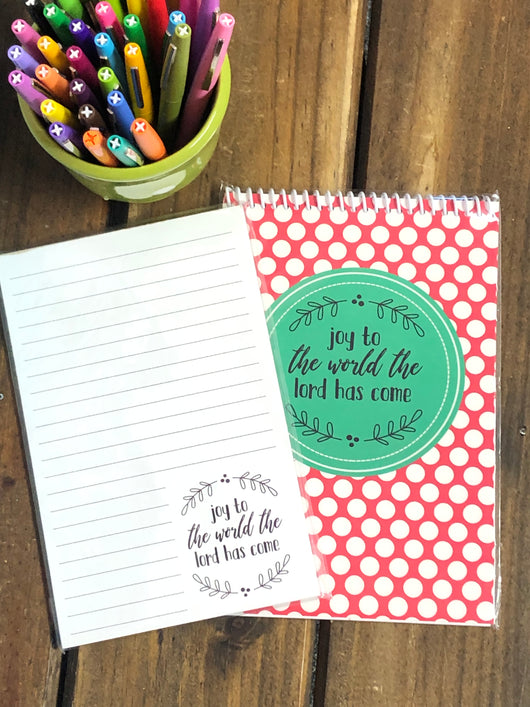 joy to
the world the
lord has come
joy to
the world the
lord has come